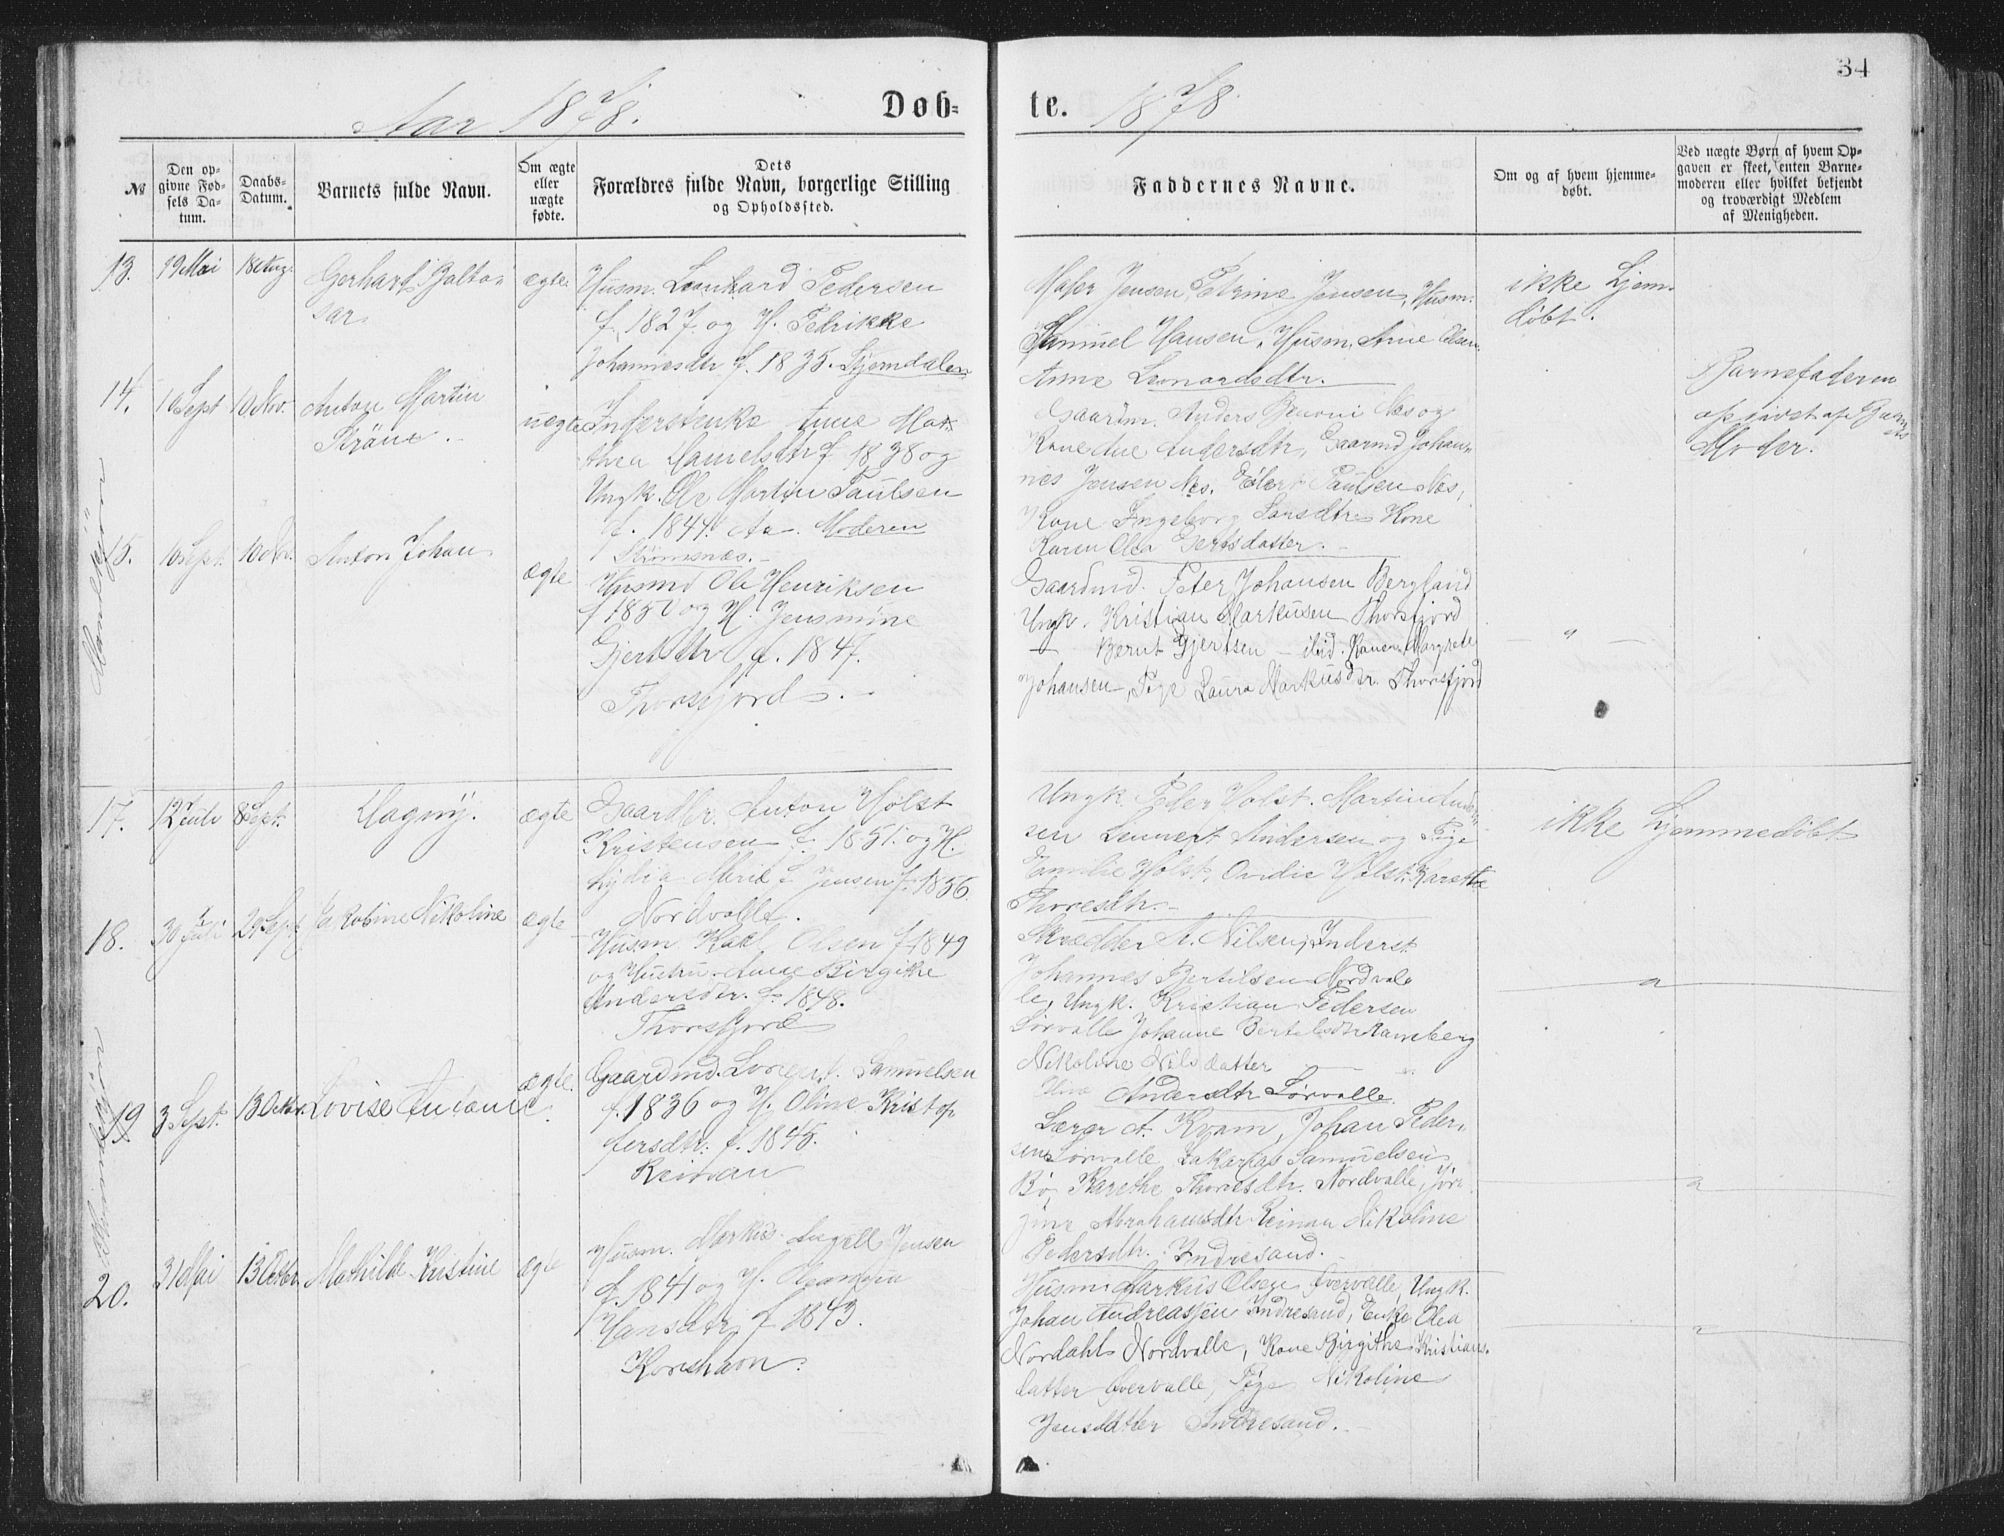 34
Aar 1878.
Døb-
te.
1878
№
Den op-
givne Fød-
sels Da-
tum.
Daabs-
Datum.
Barnets fulde Navn.
Om ægte
eller
uægte
fødte.
Dets
Forældres fulde Navn, borgerlige Stilling
og Opholdssted.
Faddernes Navne.
Om og af hvem hjemme-
døbt.
Ved uægte Børn af hvem Op-
gaven er skeet, enten Barne-
moderen eller hvilket bekjendt
og troværdigt Medlem
af Menigheden.
13.
19 Mai
18 Aug.
Gerhart Balta-
sar
ægte
Husm. Leonhard Pedersen
f. 1827. og H. Pedrikke
Johannesdtr f. 1835. Stjerndalen
Jensen, Petrine Jensen, Husm.
Samuel Hansen, Husm. Arne Olsen.
Anne Leonardsdtr.
ikke hjem-
døbt.
14.
10 Sept
10 Nov.
Anton Martin
Strøm.
uegte
Inderstenke Anne Mat-
thea f. 1838 og
Ungk. Ole Martin Paulsen
f. 1844. Aa. Moderen
Strømsnæs.
Gaardm. Anders Næs og
Kone Andersdtr, Gaarmd Johan-
nes Jensen Næs. Eilert Paulsen Næs,
Kone Ingeborg Larsdtr Kone
Karen Olea Gertsdatter.
Barnefaderen
opgivet af Barnets
Moder.
15.
10 Sept.
10 Nov.
Anton Johan
ægte
Husmd Ole Henriksen
f 1850 og H. Jensmine
Gjertsdtr f. 1847.
Thorsfjord.
Gaardmd. Peter Johansen Bergland
Ungk. Kristian Markusen Thorsfjord
— Bernt Gjertsen — ibid. Konen Margrete
Johansen, Pige Laura Markusdtr. Thorsfjord
— " —
17.
12 Juli
8 Sept.
Magny.
ægte
Gaardbr. Anton Holst
Kristensen f. 1851. og H.
Lydia Jensen f. 1856.
Nordvalle.
Ungk. Peder Holst. Martin Ander-
sen Lennert Andersen og Pige
Emilie Holst, Ovidie Holst. Karethe
Thoresdtr.
ikke hjemmedøbt
18.
30 Juli
29 Sept
Jakobine Nikoline
ægte
Husm Karl Olsen f 1849
og Hustru Anne Birgithe
Andersdtr. f. 1848.
Thorsfjord
Skrædder A. Nilsen, Inderst
Johannes Bertilsen Nordval-
le, Ungk. Kristian Pedersen
Sørvalle Johanne Bertilsdtr Ramberg
Nikoline Nilsdatter
Andersdtr Sørvalle.
"
19
3 Sept.
13 Oktbr.
Lovise Andanie
ægte.
Gaardmd. Lorents. Samuelsen
f. 1836 og H. Oline Kristop
fersdtr. f. 1845.
Reinan
Lærer A. Kvam, Johan Peder-
sen Sørvalle Zakarias Samuelsen
Bø, Karethe Thoresdtr. Nordvalle, Jør-
gine Abrahamsdtr. Reinan Nikoline
Pedersdtr. Indresand.
"
20.
31 Mai
13 Oktbr.
Mathilde Kristine
ægte
Husm. Markus Angell Jensen
f. 1841 og H.
Hansdtr f 1843.
Korshavn.
Husm Markus Olsen Øvervalle, Ungk.
Johan Andreassen Indresand, Enke Olea
Nordahl Nordvalle, Kone Birgithe Kristians-
datter Øvervalle, Pige Nikoline
Jensdatter Indresand.
"